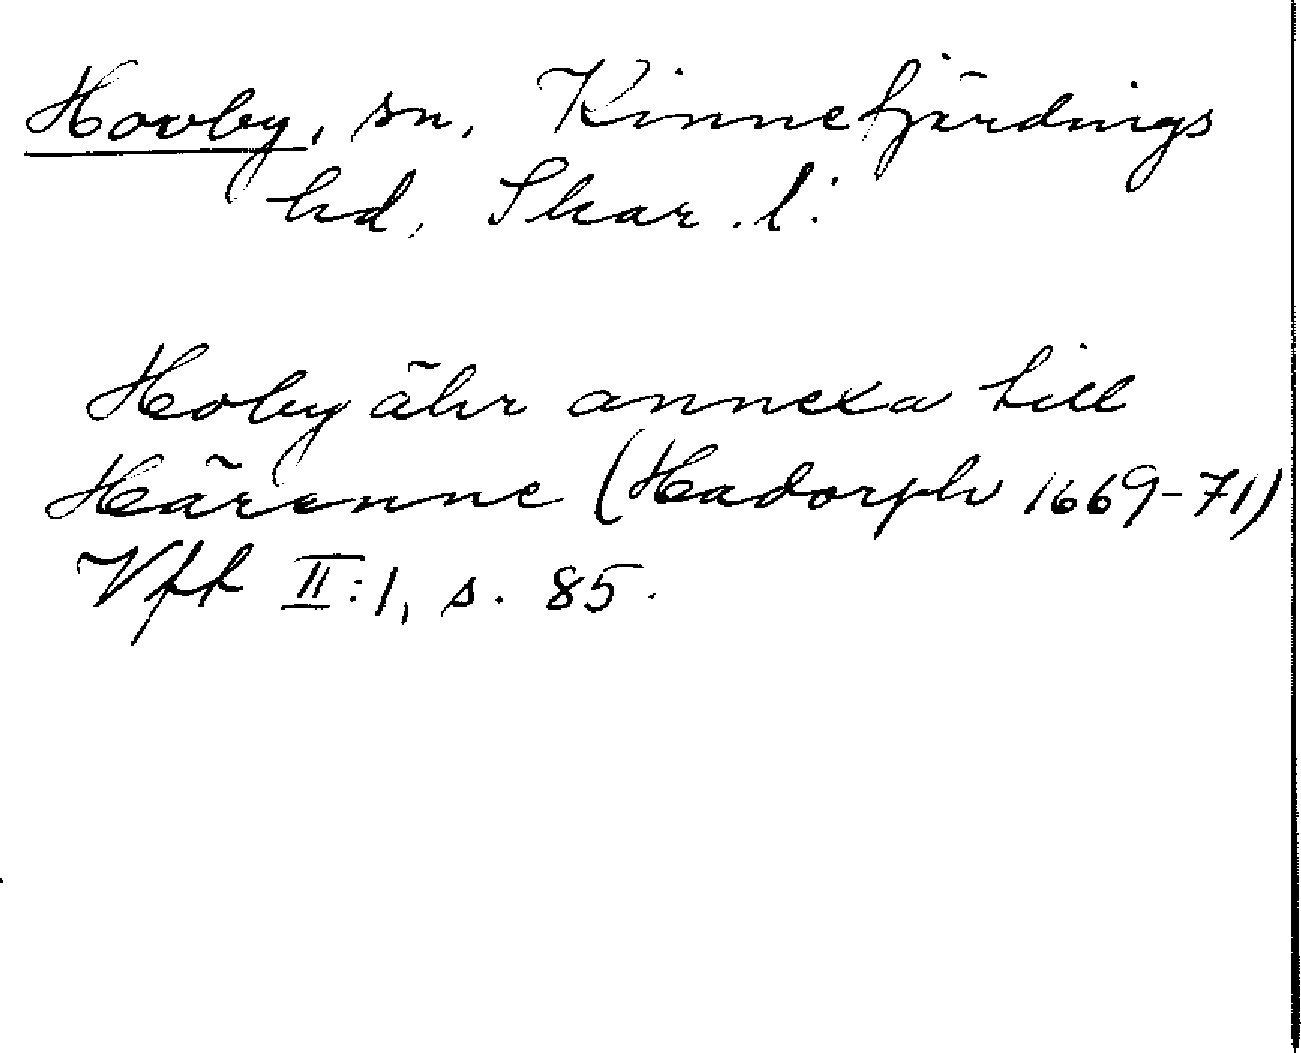 Hovby, sn, Kinnefjärdings
hd, Skar. l.
Hoby ähr annexa till
Härenne (Hadorph 1669-71)
Vfk II:1, s. 85.